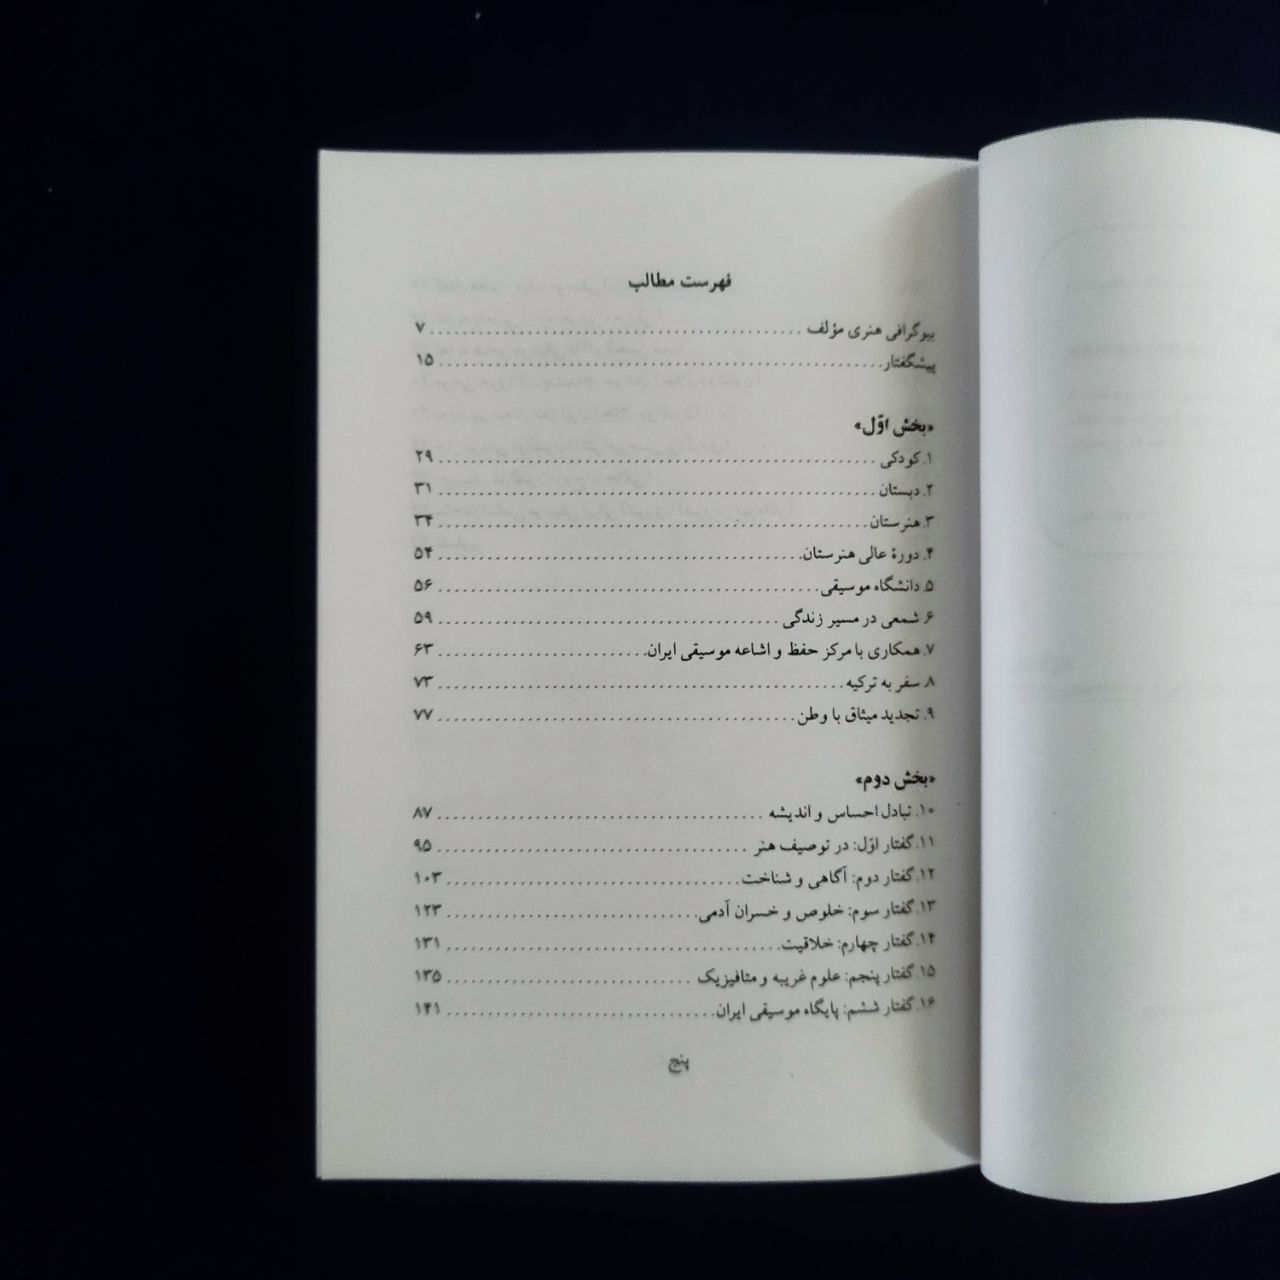 فهرست مطالب
بیوگرافی هنری مؤلف ۷
پیشگفتار ۱۵
«بخش اوّل»
۱. کودکی ۲۹
۲. دبستان ۳۱
۳. هنرستان ۳۴
۴. دورهٔ عالی هنرستان ۵۴
۵. دانشگاه موسیقی ۵۶
۶. شمعی در مسیر زندگی ۵۹
۷. همکاری با مرکز حفظ و اشاعه موسیقی ایران ۶۳
۸. سفر به ترکیه ۷۳
۹. تجدید میثاق با وطن ۷۷
«بخش دوم»
۱۰. تبادل احساس و اندیشه ۸۷
۱۱. گفتار اوّل: در توصیف هنر ۹۵
۱۲. گفتار دوم: آگاهی و شناخت ۱۰۳
۱۳. گفتار سوم: خلوص و خسران آدمی ۱۲۳
۱۴. گفتار چهارم: خلاقیت ۱۳۱
۱۵. گفتار پنجم: علوم غریبه و متافیزیک ۱۳۵
۱۶. گفتار ششم: پایگاه موسیقی ایران ۱۴۱
پنج